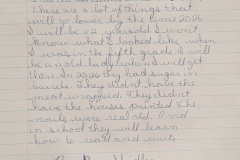 There are a lot of things that
will go lower by the time 2026
I will be 62 years old I won't
know what I looked like when
I was in the fifth grade I will
be an old lady when I will get
there. In 2026 they had sugar in
barrels. They didn't have the
meat wrapped. They didnt
have the houses painted. The
were real old. And
in school they will learn
how to read and write.